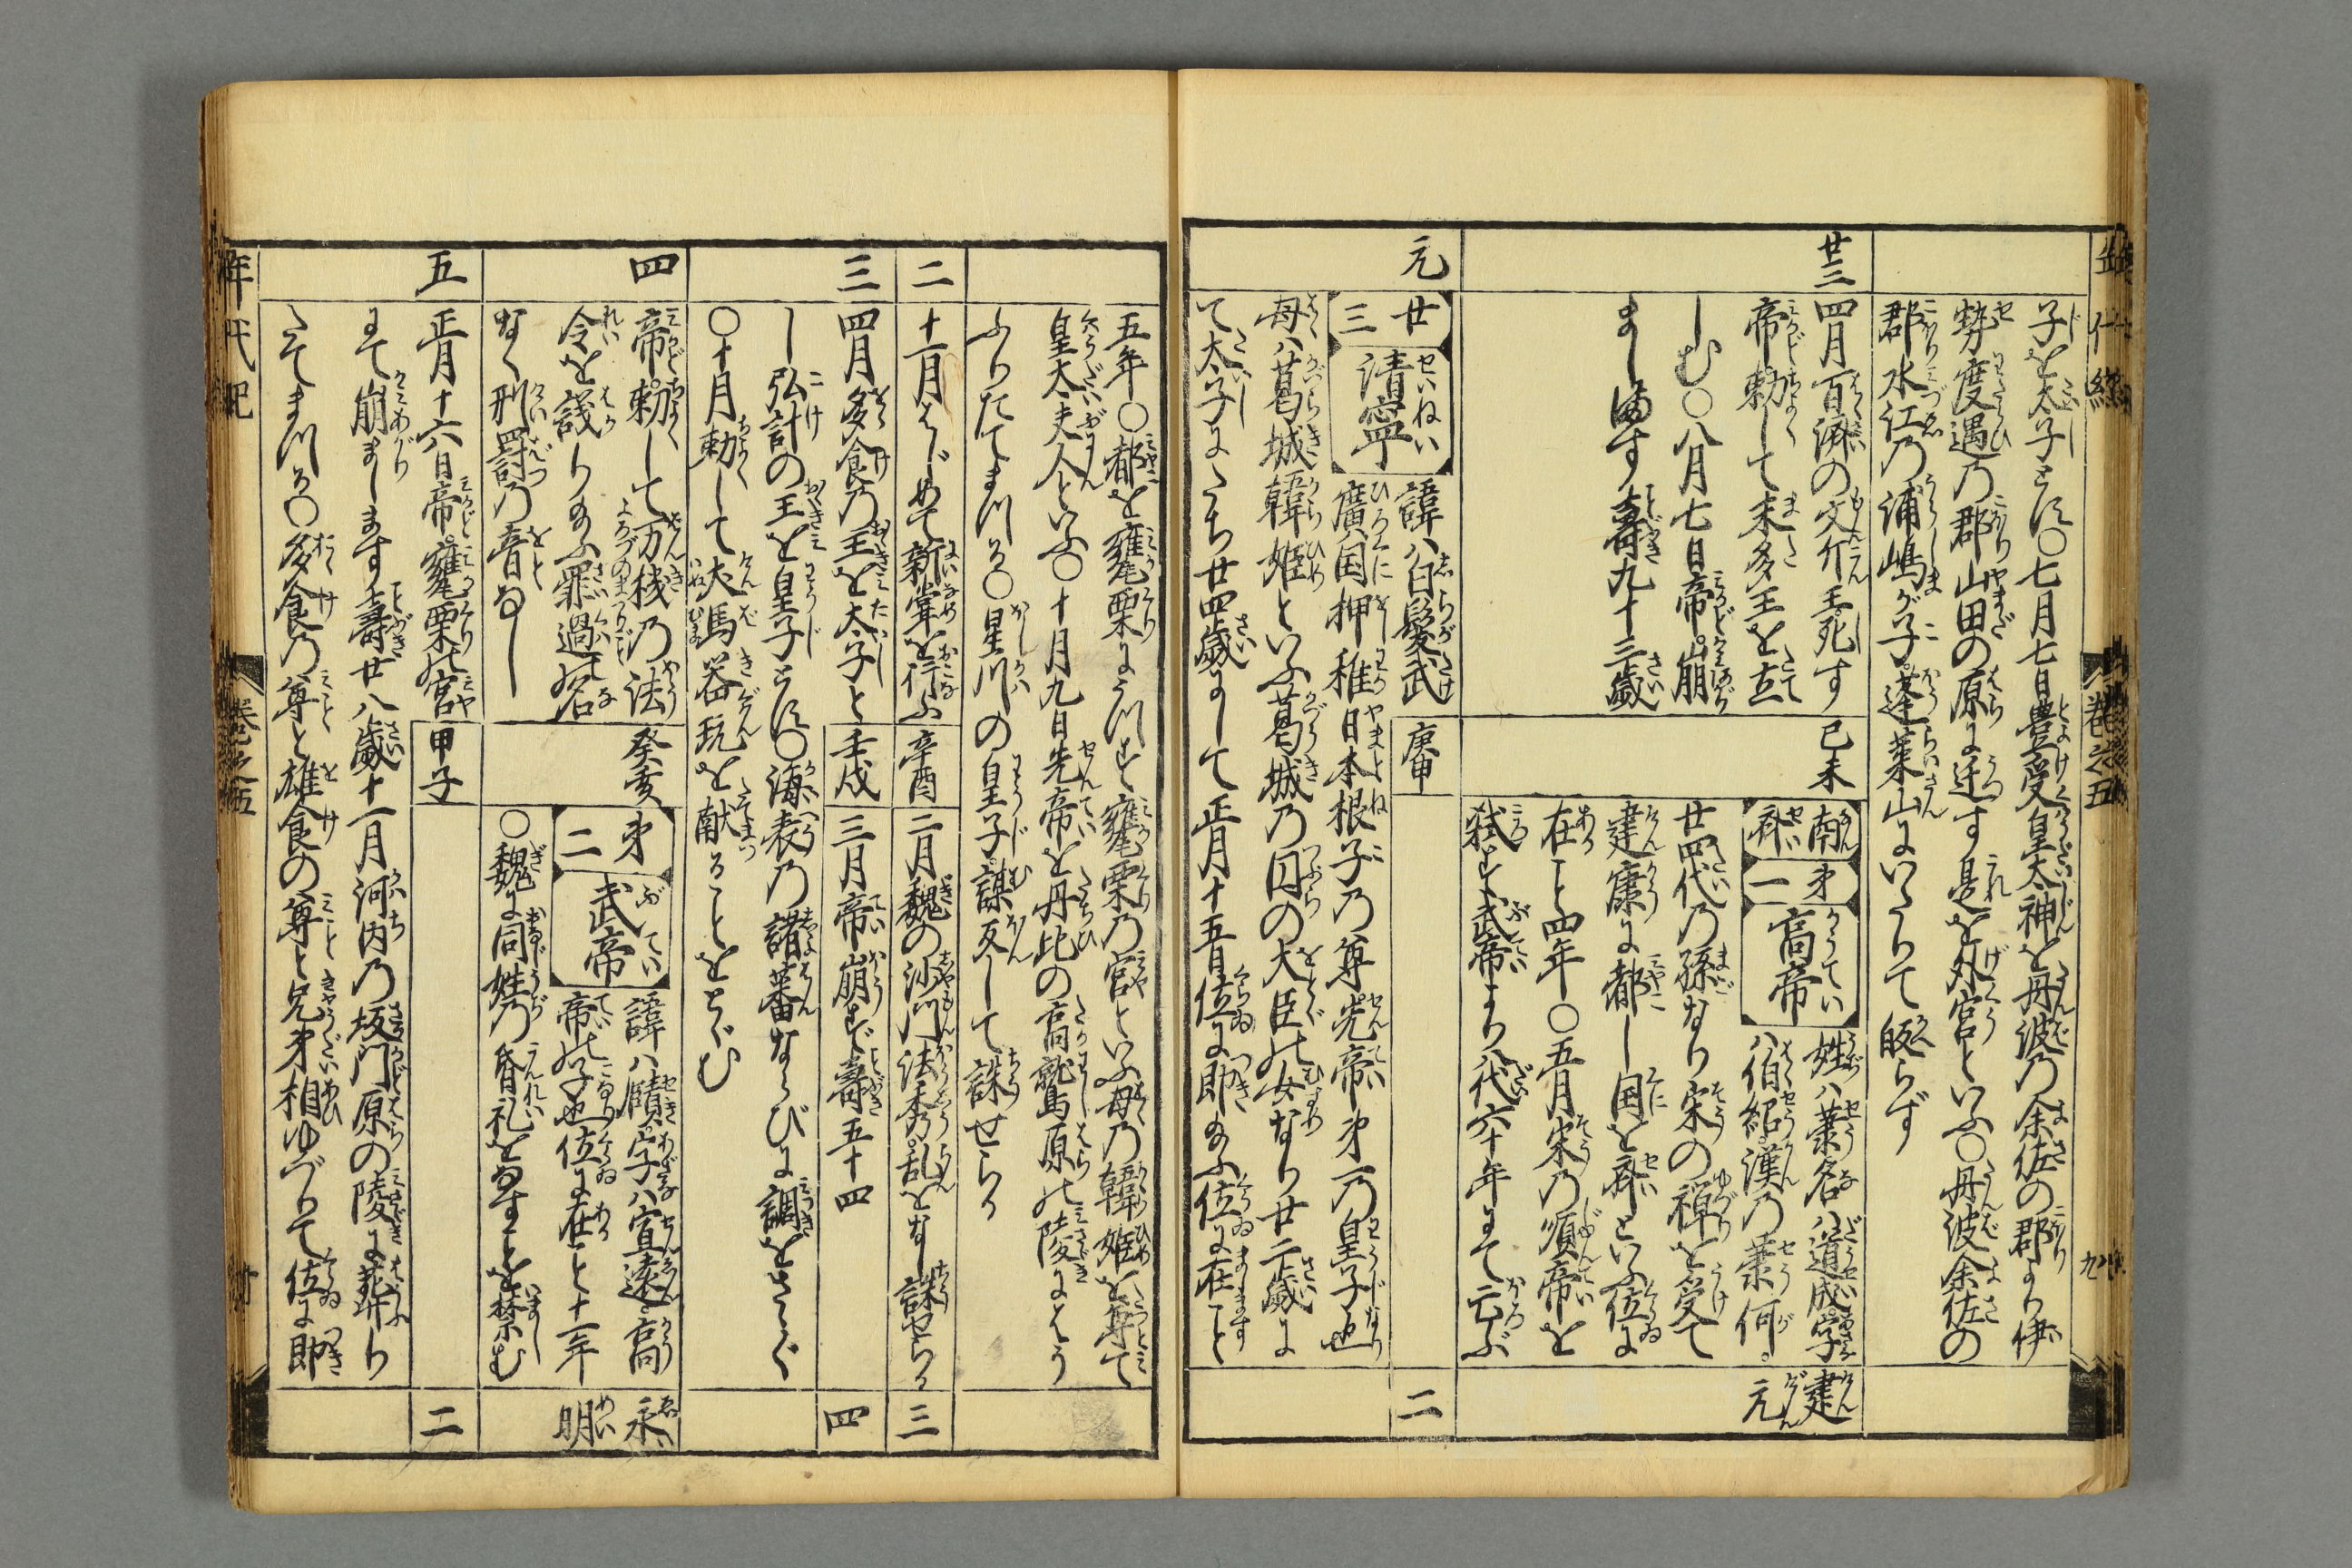 子を太子とす〇七月七日豊受皇太神を丹波乃余佐の郡より伊
勢度遇乃郡山田の原に迁す是を外宮といふ〇丹波余佐の
郡水江乃浦嶋が子蓬萊山にいたりて皈らず
廿三
四月百済の文斤王死す
帝勅して末多王を立
しむ〇八月七日帝崩
まします壽九十三歳
己未
南斉
第一
高帝
姓ハ蕭名ハ道成字
ハ伯紹漢乃蕭何
廿四代乃孫なり宋の禅を受て
建康に都し国を斉といふ位に
在こと四年〇五月宋乃順帝を
弑す武帝より八代六十年にて亡ぶ
建元
元
廿三
清寧
諱ハ白髮武
廣国押稚日本根子乃尊先帝第一乃皇子也
母ハ葛城韓姫といふ葛城乃円の大臣の女なり廿二歳に
て太子にたち廿四歳にして正月十五日位に即給ふ位に在こと
庚申
二
五年〇都を甕栗にうつす甕栗乃宮といふ母乃韓姫を尊て
皇太夫人といふ〇十月九日先帝を丹比の高鷲原の陵にはう
ふりたてまつる〇星川の皇子謀反して誅せらる
二
十一月はじめて新甞を行ふ
辛酉
二月魏の沙門法秀乱をなし誅せらる
三
三
四月多食乃王を太子と
し弘計の王を皇子とす〇海表乃諸蕃ならびに調をさゝぐ
〇十月勅して犬馬器玩を献ることをとゞむ
壬戌
三月帝崩ず壽五十四
四
四
帝勅して万機乃法
令を議り給ふ罪過の名
なく刑罰乃音なし
癸亥
第二
武帝
諱ハ賾字ハ宣遠高
帝の子也位に在こと十一年
〇魏に同姓乃昏礼をなすことを禁む
永明
五
正月十六日帝甕栗の宮
にて崩まします壽廿八歳十一月河内乃坂門原の陵に葬り
たてまつる〇多食乃尊と雄食の尊と兄弟相ゆづりて位に即
甲子
二
年代紀
卷之五